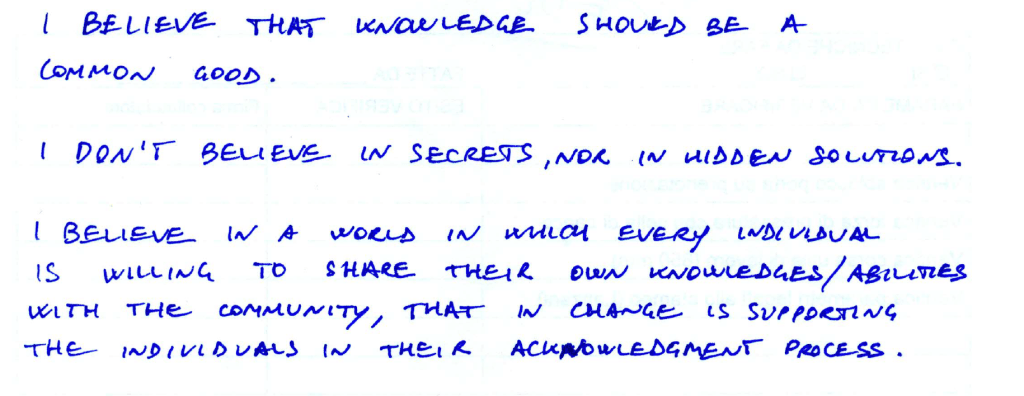 I BELIEVE THAT KNOWLEDGE SHOULD BE A
COMMON GOOD.
I DON'T BELIEVE IN SECRETS, NOR IN HIDDEN SOLUTIONS.
I BELIEVE IN A WORLD IN WHICH EVERY INDIVIDUAL
IS WILLING TO SHARE THEIR OWN KNOWLEDGES/ABILITIES
WITH THE COMMUNITY, THAT IN CHANGE IS SUPPORTING
THE INDIVIDUALS IN THEIR ACKNOWLEDGMENT PROCESS.